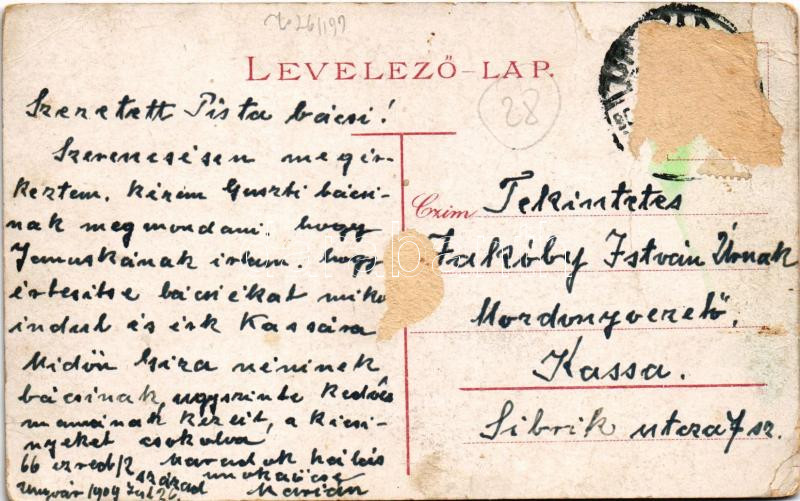 LEVELEZŐ-LAP.
28
Szeretett Pista bácsi!
Szerencsésen megér-
keztem. kérem Guszti bácsi-
nak megmondani. hogy
írtam. hogy
értesítse bácsiékat miko
indul és érk Kassára
Midőn Géza néninek
bácsinak, úgyszinte kedves
mamának kezeit, a kicsi-
nyeket csokolva
66 ezred/2 század maradok hálás
unokaöcse
Ungvár 1909 Marián
Czím
Tekintetes
Jakóby István Úrnak
Mozdonyvezető,
Kassa.
Sibrik utcza 7 sz.